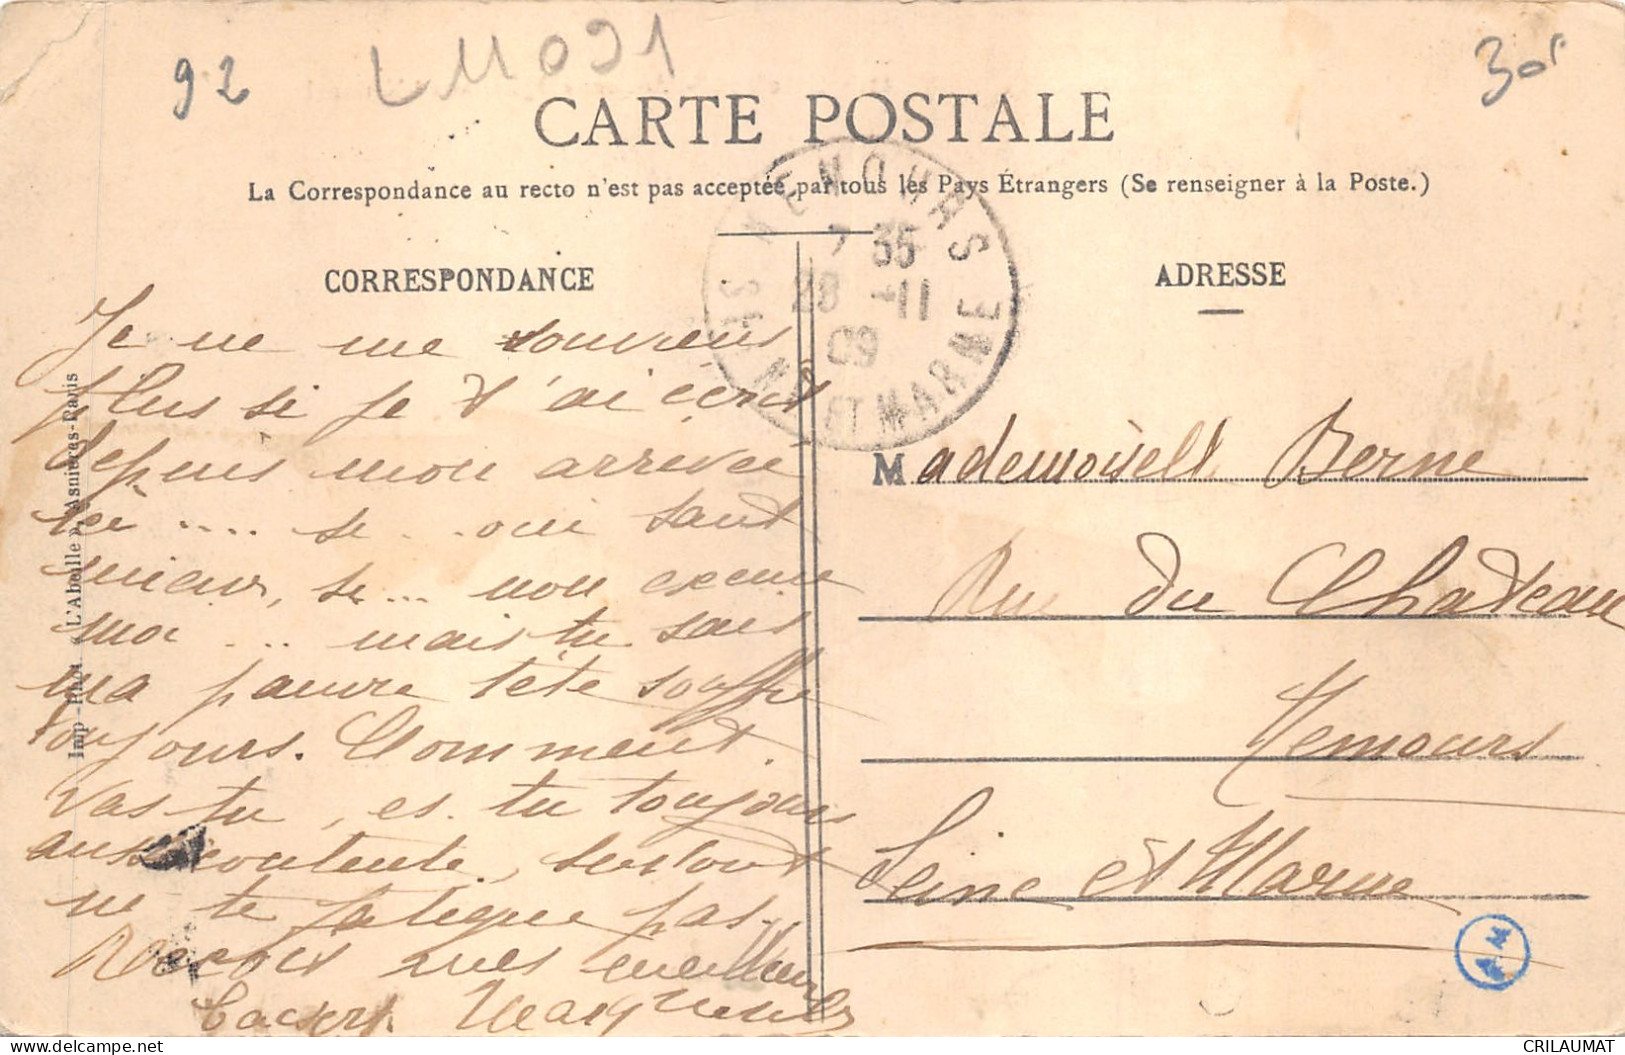 92
L11091
30f
CARTE POSTALE
La Correspondance au recto n'est pas acceptée par tous les Pays Étrangers (Se renseigner à la Poste.)
NEMOURS
7 35
28 -11
09
SEINE ET MARNE
CORRESPONDANCE
Je ne me souviens
plus si je t'ai écrit
depuis mon arrivée
ici .... si .. oui tant
mieux, si ... non excuse
moi ... mais tu sais
ma pauvre tête souffre
toujours. Comment
vas tu, es tu toujours
aussi contente, surtout
ne te fatigue pas.
Reçois mes meilleurs
baisers.
Imp.-Phot. « L'Abeille », Asnières-Paris
ADRESSE
Mademoiselle Berne
Rue du Chateau
Nemours
Seine et Marne
CRILAUMAT